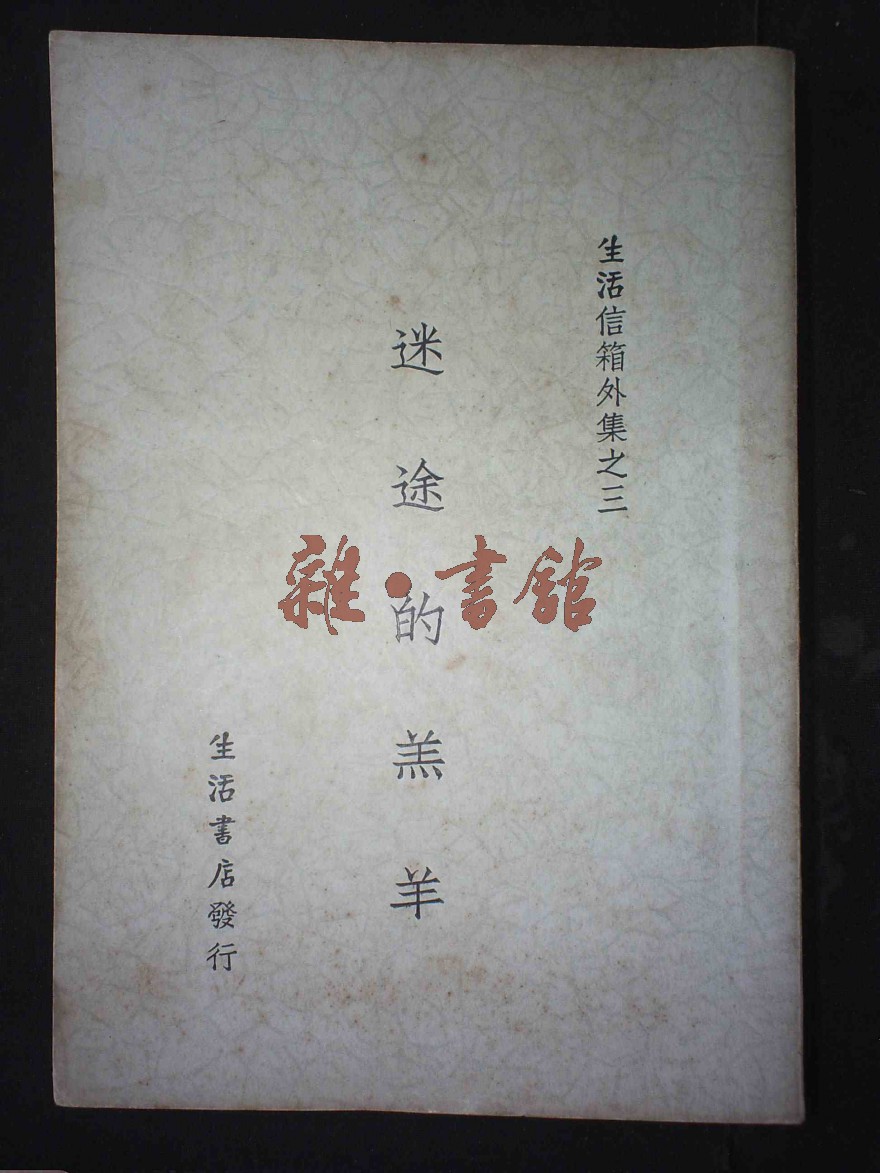 生活信箱外集之三
迷途的羔羊
生活書店發行
雜·書館